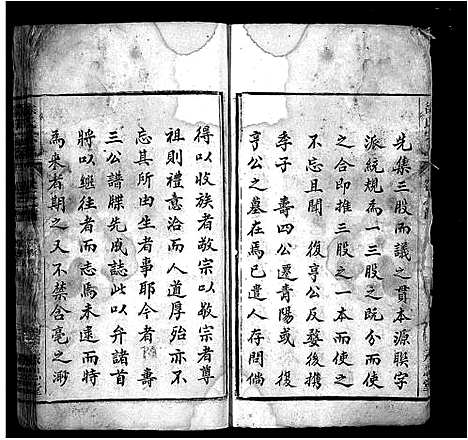 先集三股而議之貫本源聯字
派統規為一三股之既分而使
之合即推三股之一本而使之
不忘且聞 復亨公反婺後携
季子 壽四公遷青陽或 復
亨公之墓在焉已遣人存問倘
得以收族者敬宗以敬宗者尊
祖則禮意洽而人道厚殆亦不
忘其所由生者事耶今者 壽
三公譜牒先成誌此以弁諸首
將以繼往者而志焉未逮而特
為來者期之又不禁含毫之渺